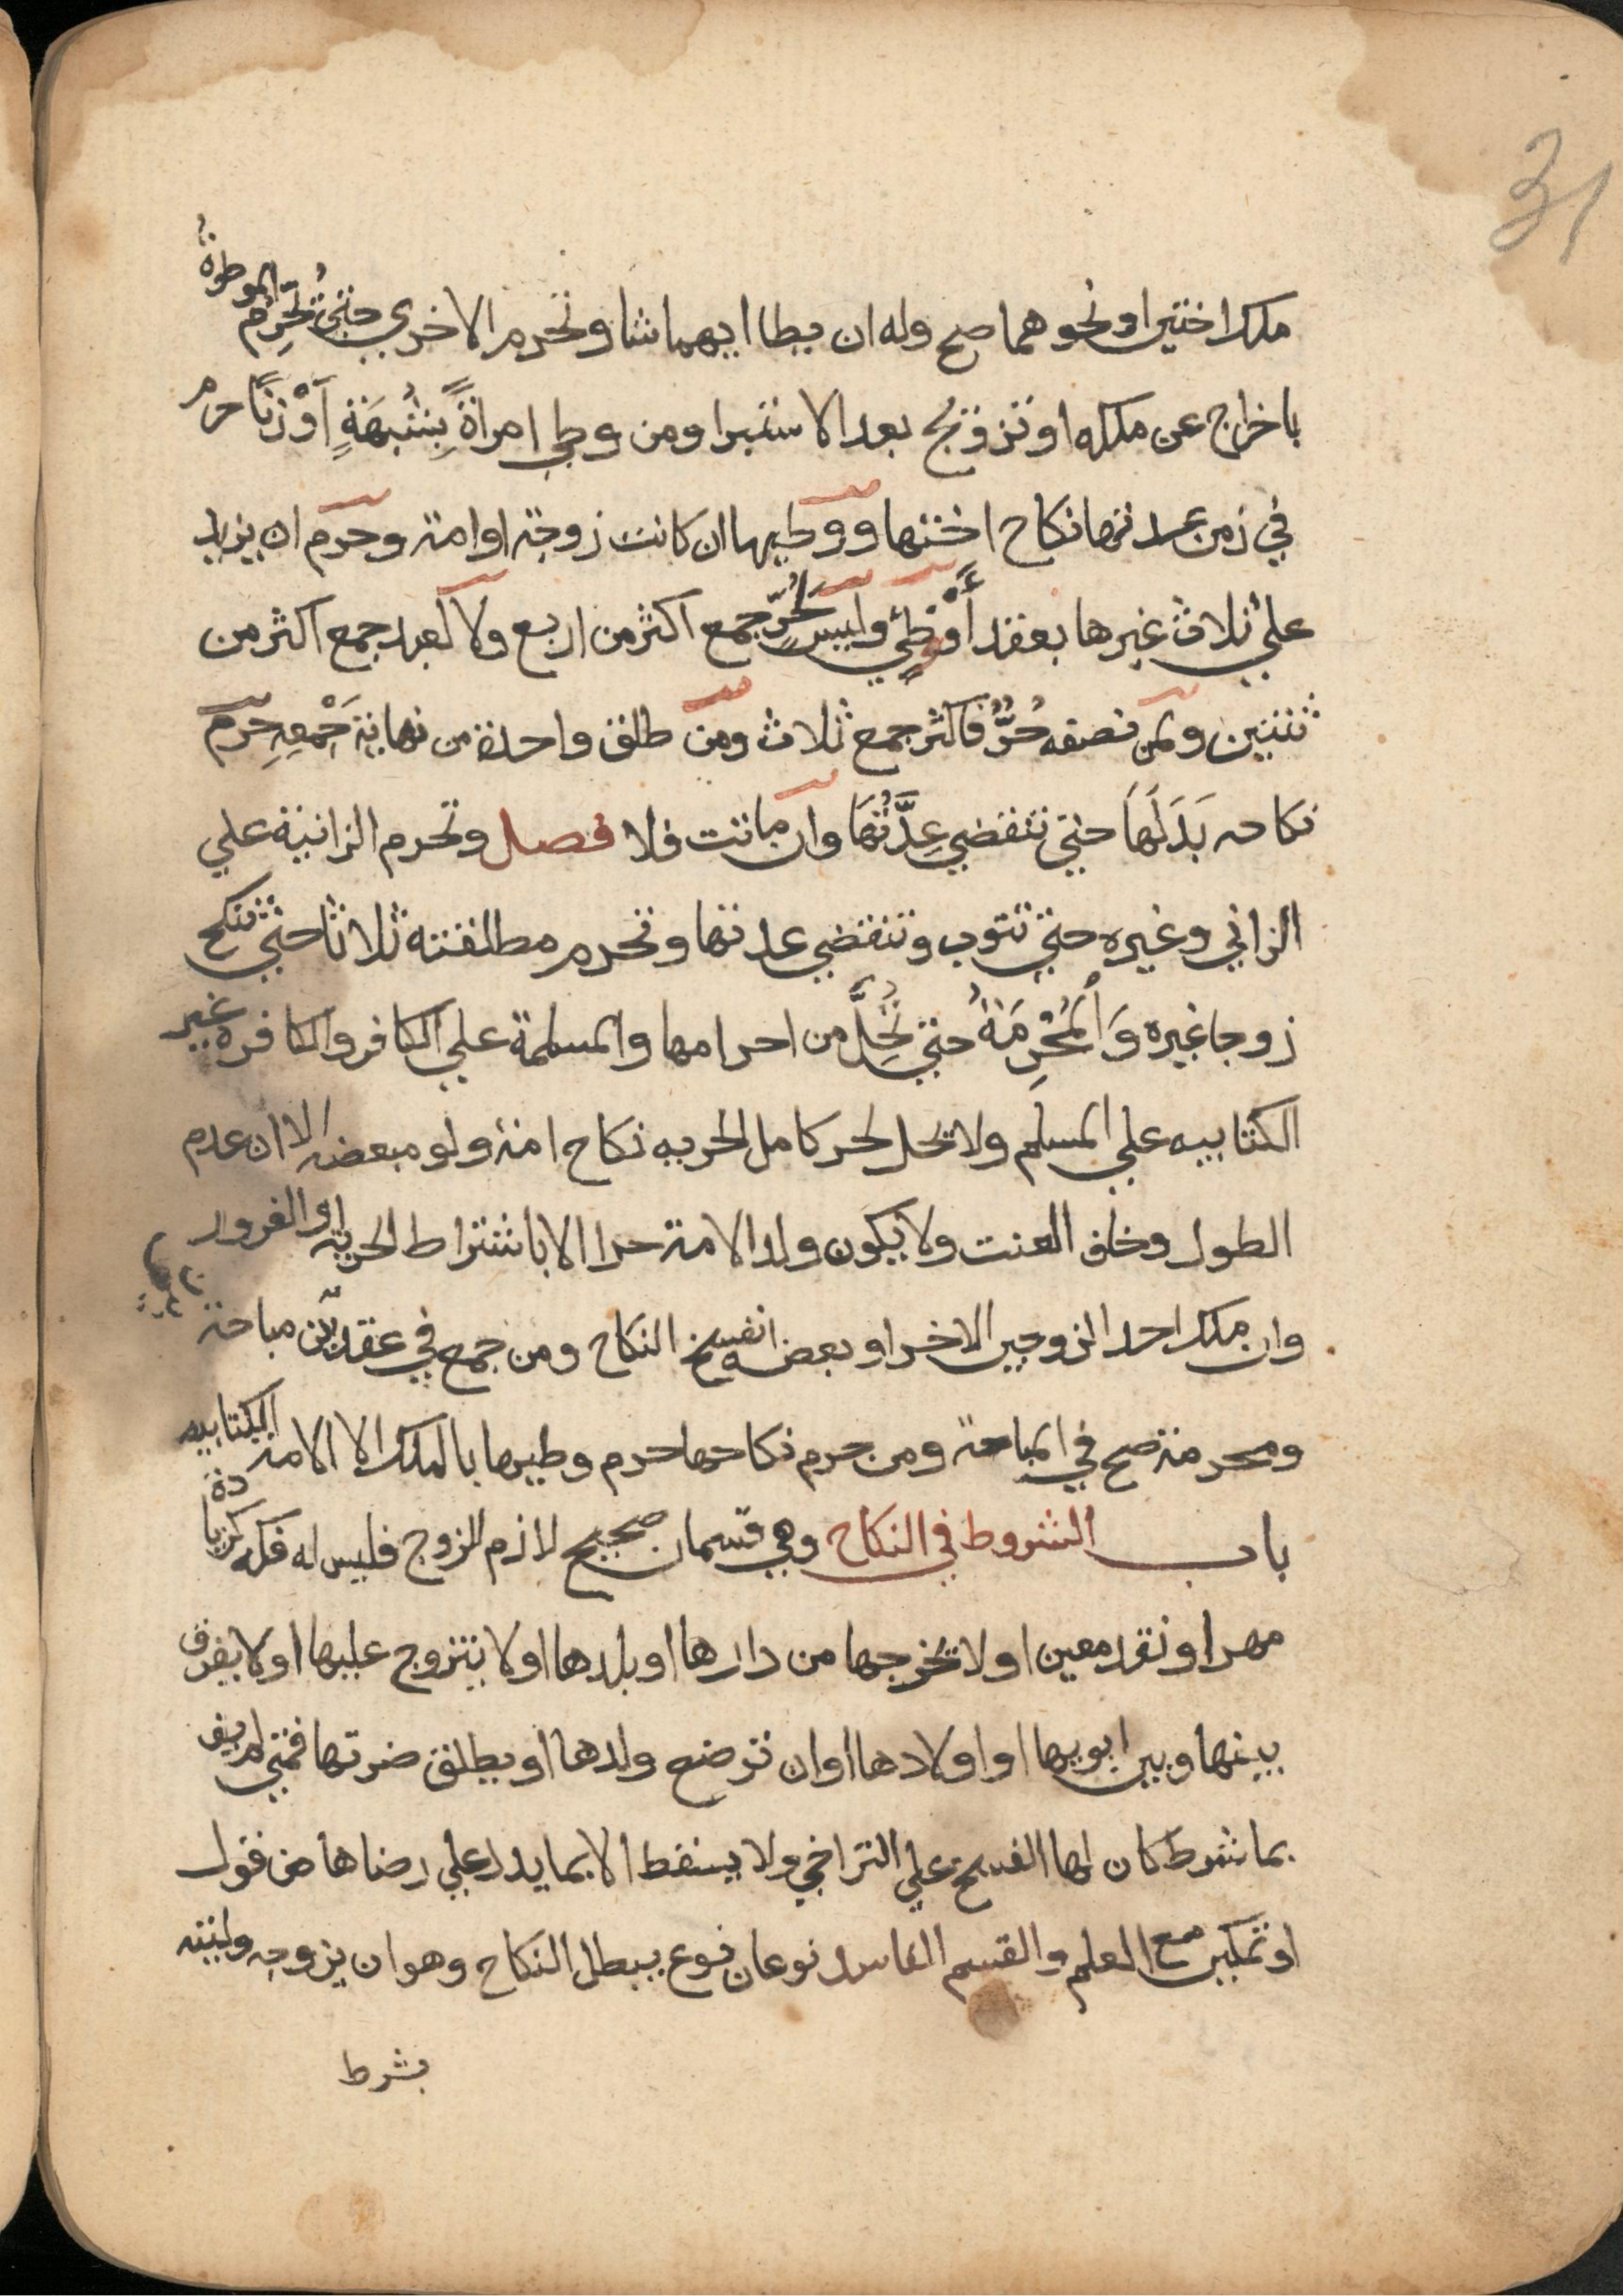 31
ملك اختين او نحوهما صح وله ان يطا ايهما شا وتحرم الاخرى حتى تُحَرِّم الموطوة
باخراج عن ملكه او تزويج بعد الاستبرا ومن وطي امراةً بِشُبهَةٍ اَوْ زنًا حرم
في زمن عدتها نكاح اختها ووطيها ان كانت زوجة او امة وحرم ان يزيد
علي ثلاث غيرها بعقد أَوْ وَطئٍ وليس لحُرٍّ جمع اكثر من اربع ولا لعبد جمع اكثر من
ثنتين ولمن نصفه حُرٌّ فاكثر جمع ثلاث ومن طلق واحدة من نهاية جَمْعِهِ حرم
نكاحه بَدَلَهَا حتي تنقضي عِدَّتُهَا وان ماتت فلا فصل وتحرم الزانية علي
الزاني وغيره حتي تتوب وتنقضي عدتها وتحرم مطلقته ثلاثا حتي تنكح
زوجا غيره وَاْلمُحْرِمَةُ حتي تَحِلَّ من احرامها والمسلمة علي الكافر والكافرة غير
الكتابيه علي المسلم ولا تحل لحر كامل الحريه نكاح امة ولو مبعضه الا ان عدم
الطول وخاف العنت ولا يكون ولد الامة حرا الا باشتراط الحرية او الغرور
وان ملك احد الزوجين الاخر او بعضه انفسخ النكاح ومن جمع في عقد بين مباحة
ومحرمة صح في المباحة ومن حرم نكاحها حرم وطيها بالملك الا الامة الكتابيه
باب الشروط في النكاح وهي قسمان صحيح لازم للزوج فليس له فكه كزيادة
مهر او نقد معين او لا تخرجها من دارها او بلدها او لا يتزوج عليها او لا يفرق
بينها وبين ابويها او اولادها او ان ترضع ولدها او يطلق ضرتها فمتي لم يف
بما شرط كان لها الفسخ علي التراخي ولا يسقط الا بما يدل علي رضاها من قول
او تمكين مع العلم والقسم الفاسد نوعان نوع يبطل النكاح وهو ان يزوجه وليته
بشرط